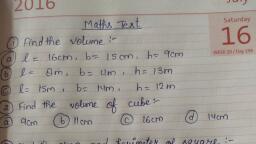 2016
July
Maths Test
Saturday
16
① Find the volume :-
ⓐ l = 16cm, b = 15cm, h = 9cm
ⓑ l = 8m, b = 4m, h = 13m
ⓒ l = 15m, b = 14m, h = 12m
② Find the volume of cube :-
ⓐ 9cm ⓑ 11cm ⓒ 16cm ⓓ 14cm
and perimeter of square :-